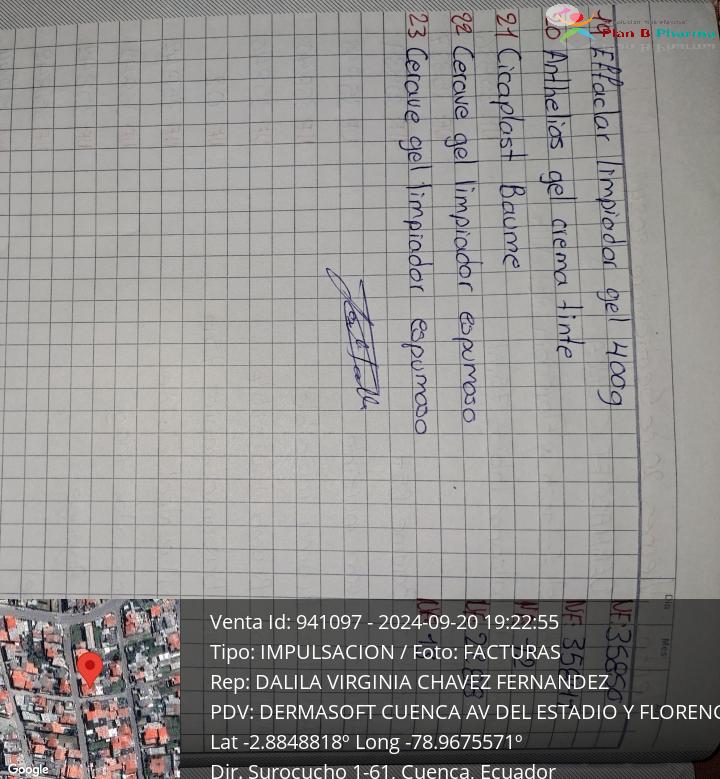 Plan B Pharma
19 Effaclar limpiador gel 400g
20 Anthelios gel crema tinte
21 Cicaplast Baume
22 Cerave gel limpiador espumoso
23 Cerave gel limpiador espumoso
Dia Mes
Venta Id: 941097 - 2024-09-20 19:22:55
Tipo: IMPULSACION / Foto: FACTURAS
Rep: DALILA VIRGINIA CHAVEZ FERNANDEZ
PDV: DERMASOFT CUENCA AV DEL ESTADIO Y FLORENC
Lat -2.8848818º Long -78.9675571º
Dir. Surocucho 1-61, Cuenca, Ecuador
Google